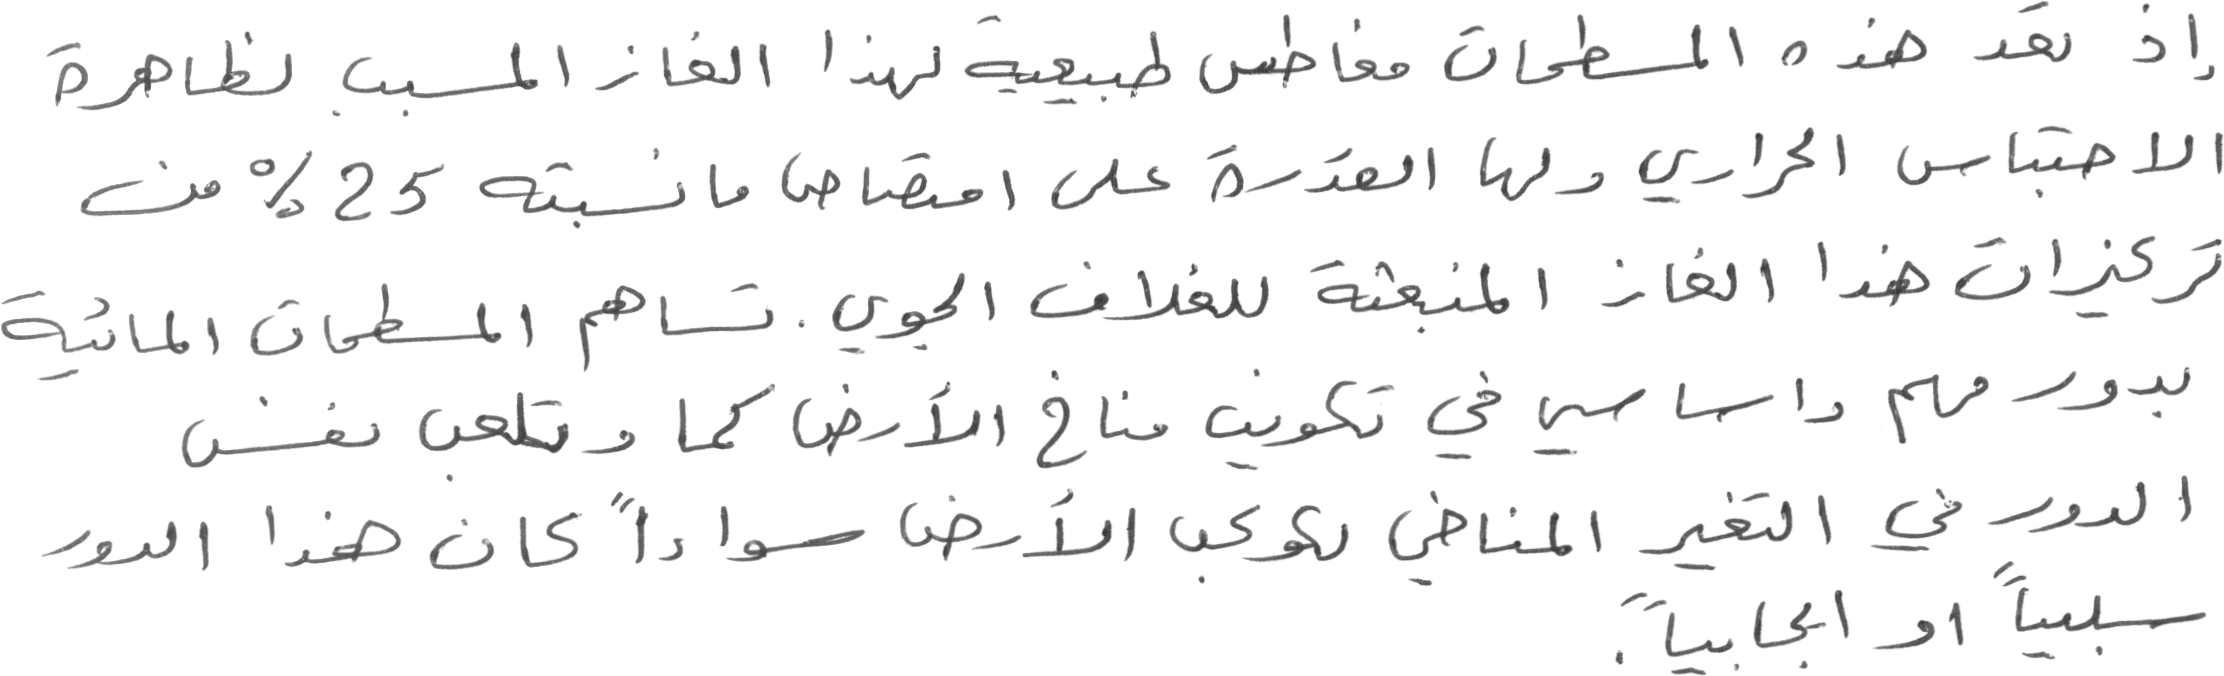 إذ تعد هذه المسطحات مغاطس طبيعية لهذا الغاز المسبب لظاهرة
الاحتباس الحراري ولها القدرة على امتصاص ما نسبته 25% من
تركيزات هذا الغاز المنبعثة للغلاف الجوي. تساهم المسطحات المائية
بدور مهم واساسي في تكوين مناخ الأرض كما وتلعب نفس
الدور في التغير المناخي لكوكب الأرض سواءاً كان هذا الدور
سلبياً او ايجابياً.